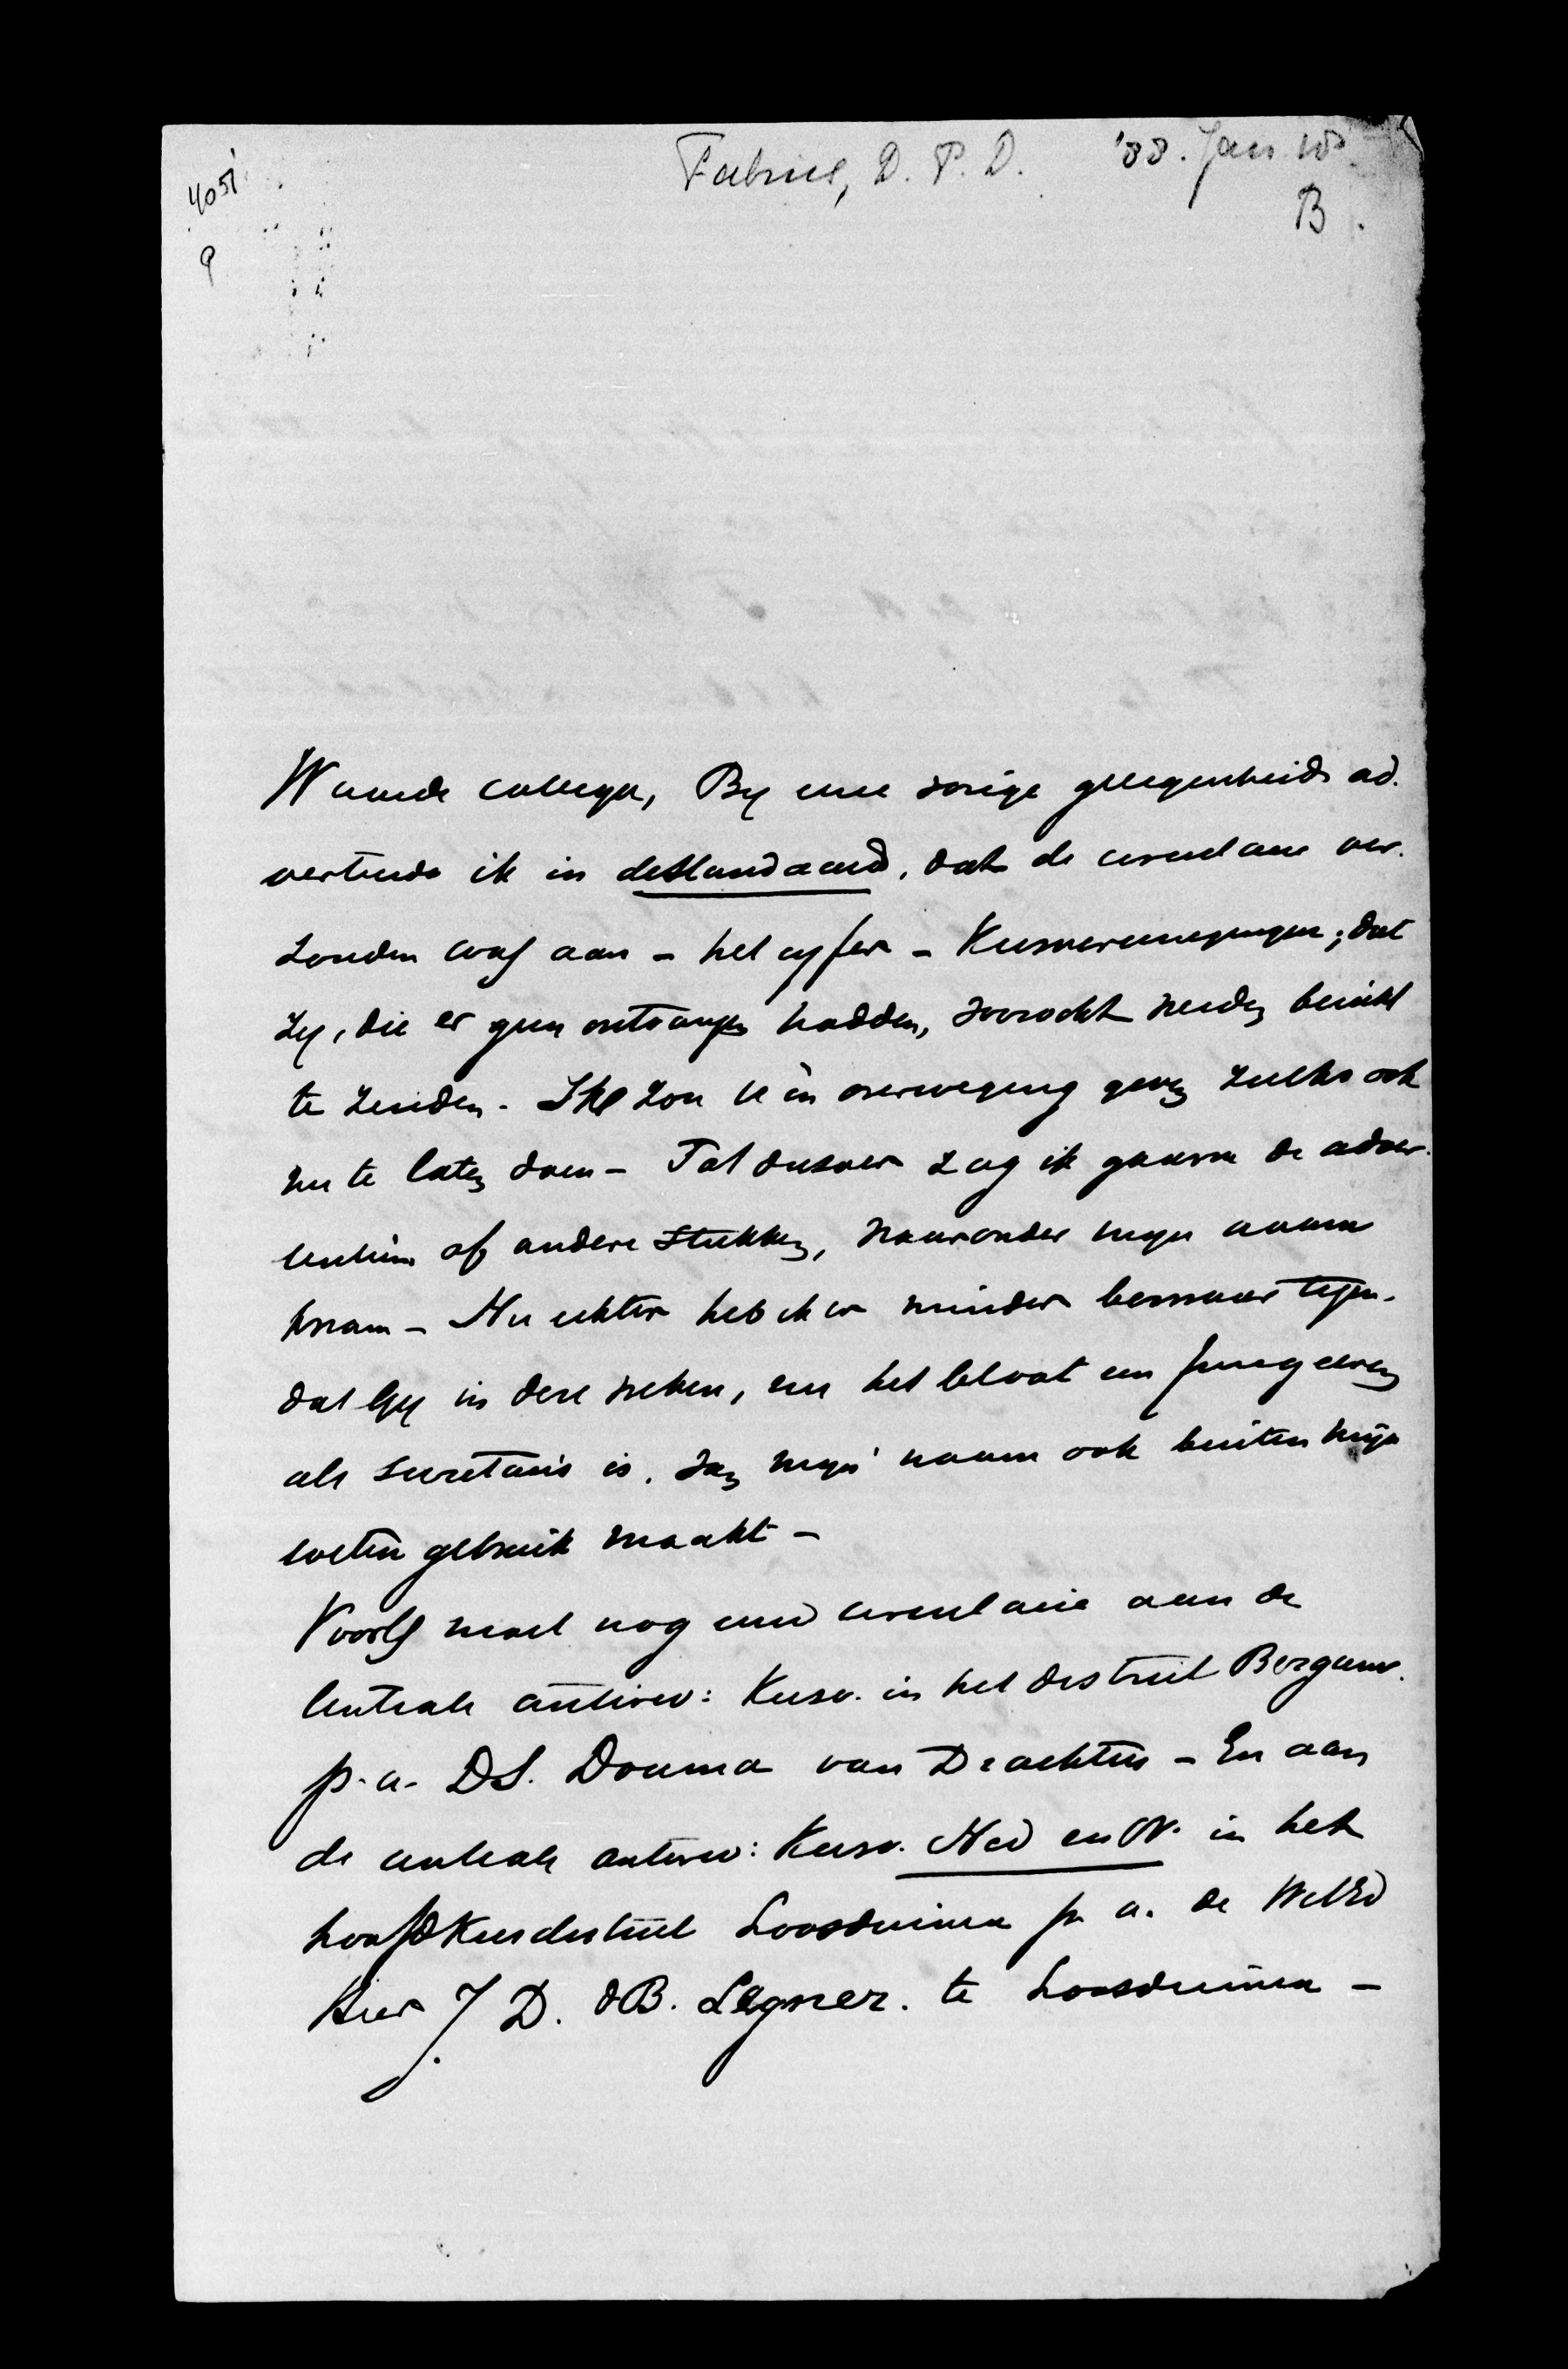 4051
9
Fabius, D. P. D. '88. Jan 18
B.
Waarde collega, By eene vorige gelegenheid ad.
verteerde ik in deStandaard, dat de circulaire ver.
zonden was aan - het cyfer - Kiesvereenigingen; dat
zy, die er geen ontvangen hadden, verzocht werden bericht
te zenden. Ik zou U in overweging geven zulks ook
nu te laten doen - Tot dusver zag ik gaarne de adver.
tentien of andere stukken, waaronder myn naam
kwam - Nu echter heb ik er minder bezwaar tegen.
dat Gy in deze weken, nu het bloot een fungeeren
als secretaris is, van myn naam ook buiten mijn
weten gebruik maakt -
Voorts moet nog eene circulaire aan de
Centrale antirev: Kiesv. in het district Bergum.
p. a. DS. Douma van Drachten - En aan
de centrale antirev: Kiesv. Ned en Or. in het
hoofdKiesdistrict Loosduinen p. a. de WelEd
Heer J D. d B. te Loosduinen -